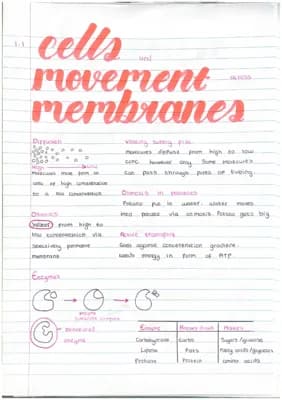 1.1
cells
and
movement
across
membranes
Diffusion
High
Low
Molecules move from an
area of high concentration
to a low concentration
Osmosis
Water from high to
low concentration via
selectively permeable
membrane
Visking tubing prac.
Molecules diffuse from high to low
conc. however only some molecules
can pass through pores of tubing.
Osmosis in potatoes
Potato put in water. Water moves
into potato via osmosis. Potato gets big
Active transport
Goes against concentration gradient.
Needs energy in form of ATP.
Enzymes
enzyme
substrate complex
denatured
enzyme
Enzyme Breaks down Makes
Carbohydrase Carbs Sugars/glucose
Lipase Fats Fatty acids/glycerol
Protease Protein amino acids